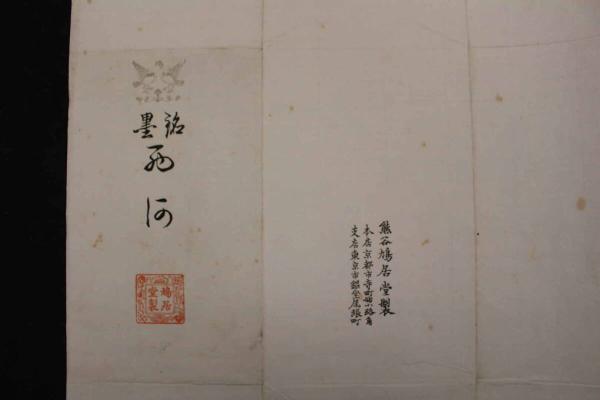 熊谷鳩居堂製
本店京都市寺町姉小路角
支店東京市銀座尾張町
銘墨
河
鳩居堂製